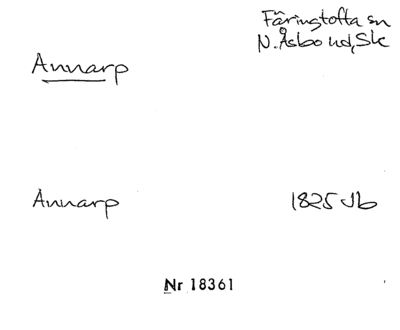 Färingtofta sn
N. Åsbo hd, Sk
Annarp
Annarp 1825 Jb
Nr 18361